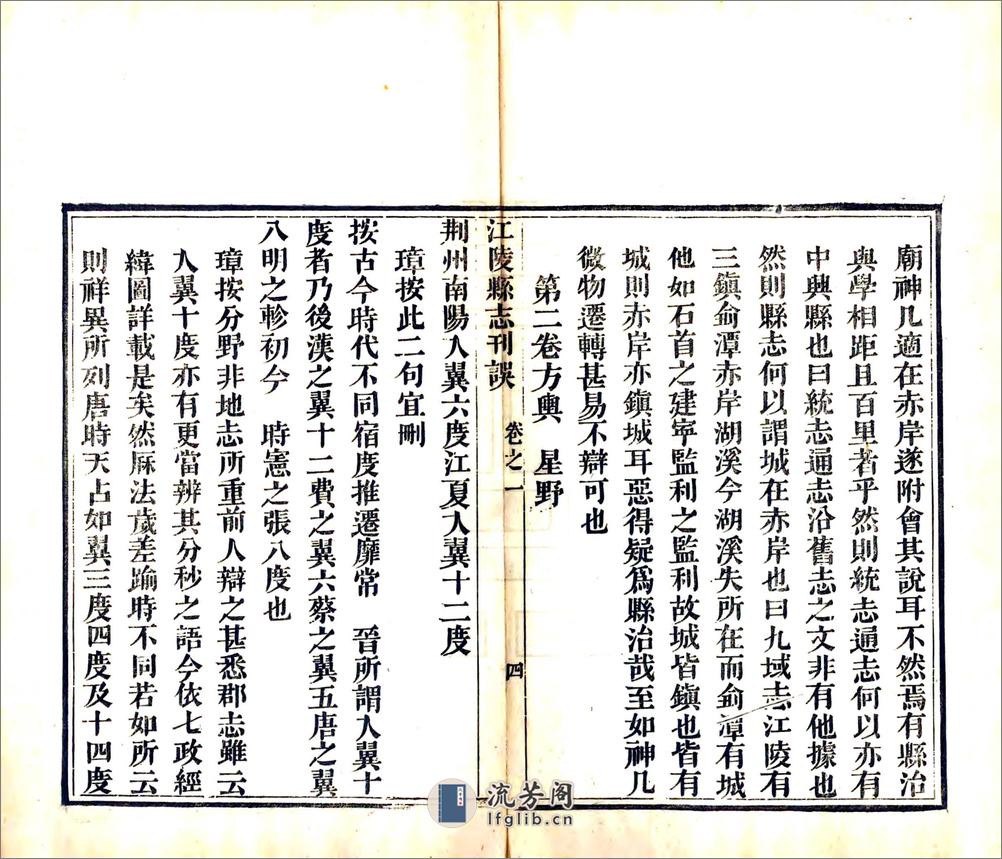 廟神几適在赤岸遂附會其說耳不然焉有縣治
與學相距且百里者乎然則統志通志何以亦有
中興縣也曰統志通志沿舊志之文非有他據也
然則縣志何以謂城在赤岸也曰九域志江陵有
三鎮俞潭赤岸湖溪今湖溪失所在而俞潭有城
他如石首之建寧監利之監利故城皆鎮也皆有
城則赤岸亦鎮城耳惡得疑爲縣治哉至如神几
微物遷轉甚易不辯可也
第二卷方輿　星野
江陵縣志刊誤　卷之一　四
荆州南陽入翼六度江夏入翼十二度
璋按此二句宜刪
按古今時代不同宿度推遷靡常　晉所謂入翼十
度者乃後漢之翼十二費之翼六蔡之翼五唐之翼
八明之軫初今　時憲之張八度也
璋按分野非地志所重前人辯之甚悉郡志雖云
入翼十度亦有更當辨其分秒之語今依七政經
緯圖詳載是矣然厤法歲差踰時不同若如所云
則祥異所列唐時天占如翼三度四度及十四度
流芳阁
lfglib.cn